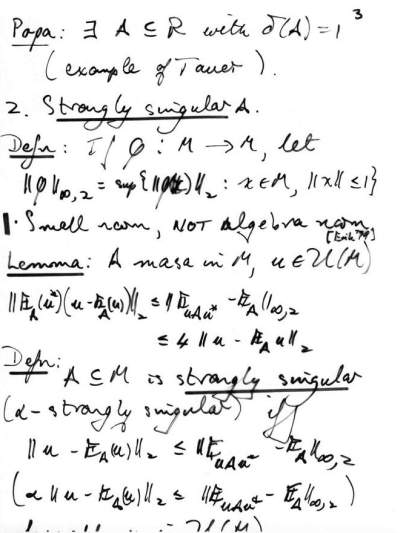 3
Popa: ∃ A ⊆ R with δ(A) = 1
(example of Tauer).
2. Strongly singular A.
Defn: If φ: M → M, let
‖φ‖∞,2 = sup{‖φ(x)‖₂ : x ∈ M, ‖x‖ ≤ 1}
1. Small norm, NOT algebra norm
Lemma: A masa in M, u ∈ U(M)
‖E_A(u*)(u - E_A(u))‖₂ ≤ ‖E_uAu* - E_A‖∞,2
≤ 4 ‖u - E_A u‖₂
Defn:
A ⊆ M is strongly singular
(α-strongly singular) if
‖u - E_A(u)‖₂ ≤ ‖E_uAu* - E_A‖∞,2
(α ‖u - E_A(u)‖₂ ≤ ‖E_uAu* - E_A‖∞,2)